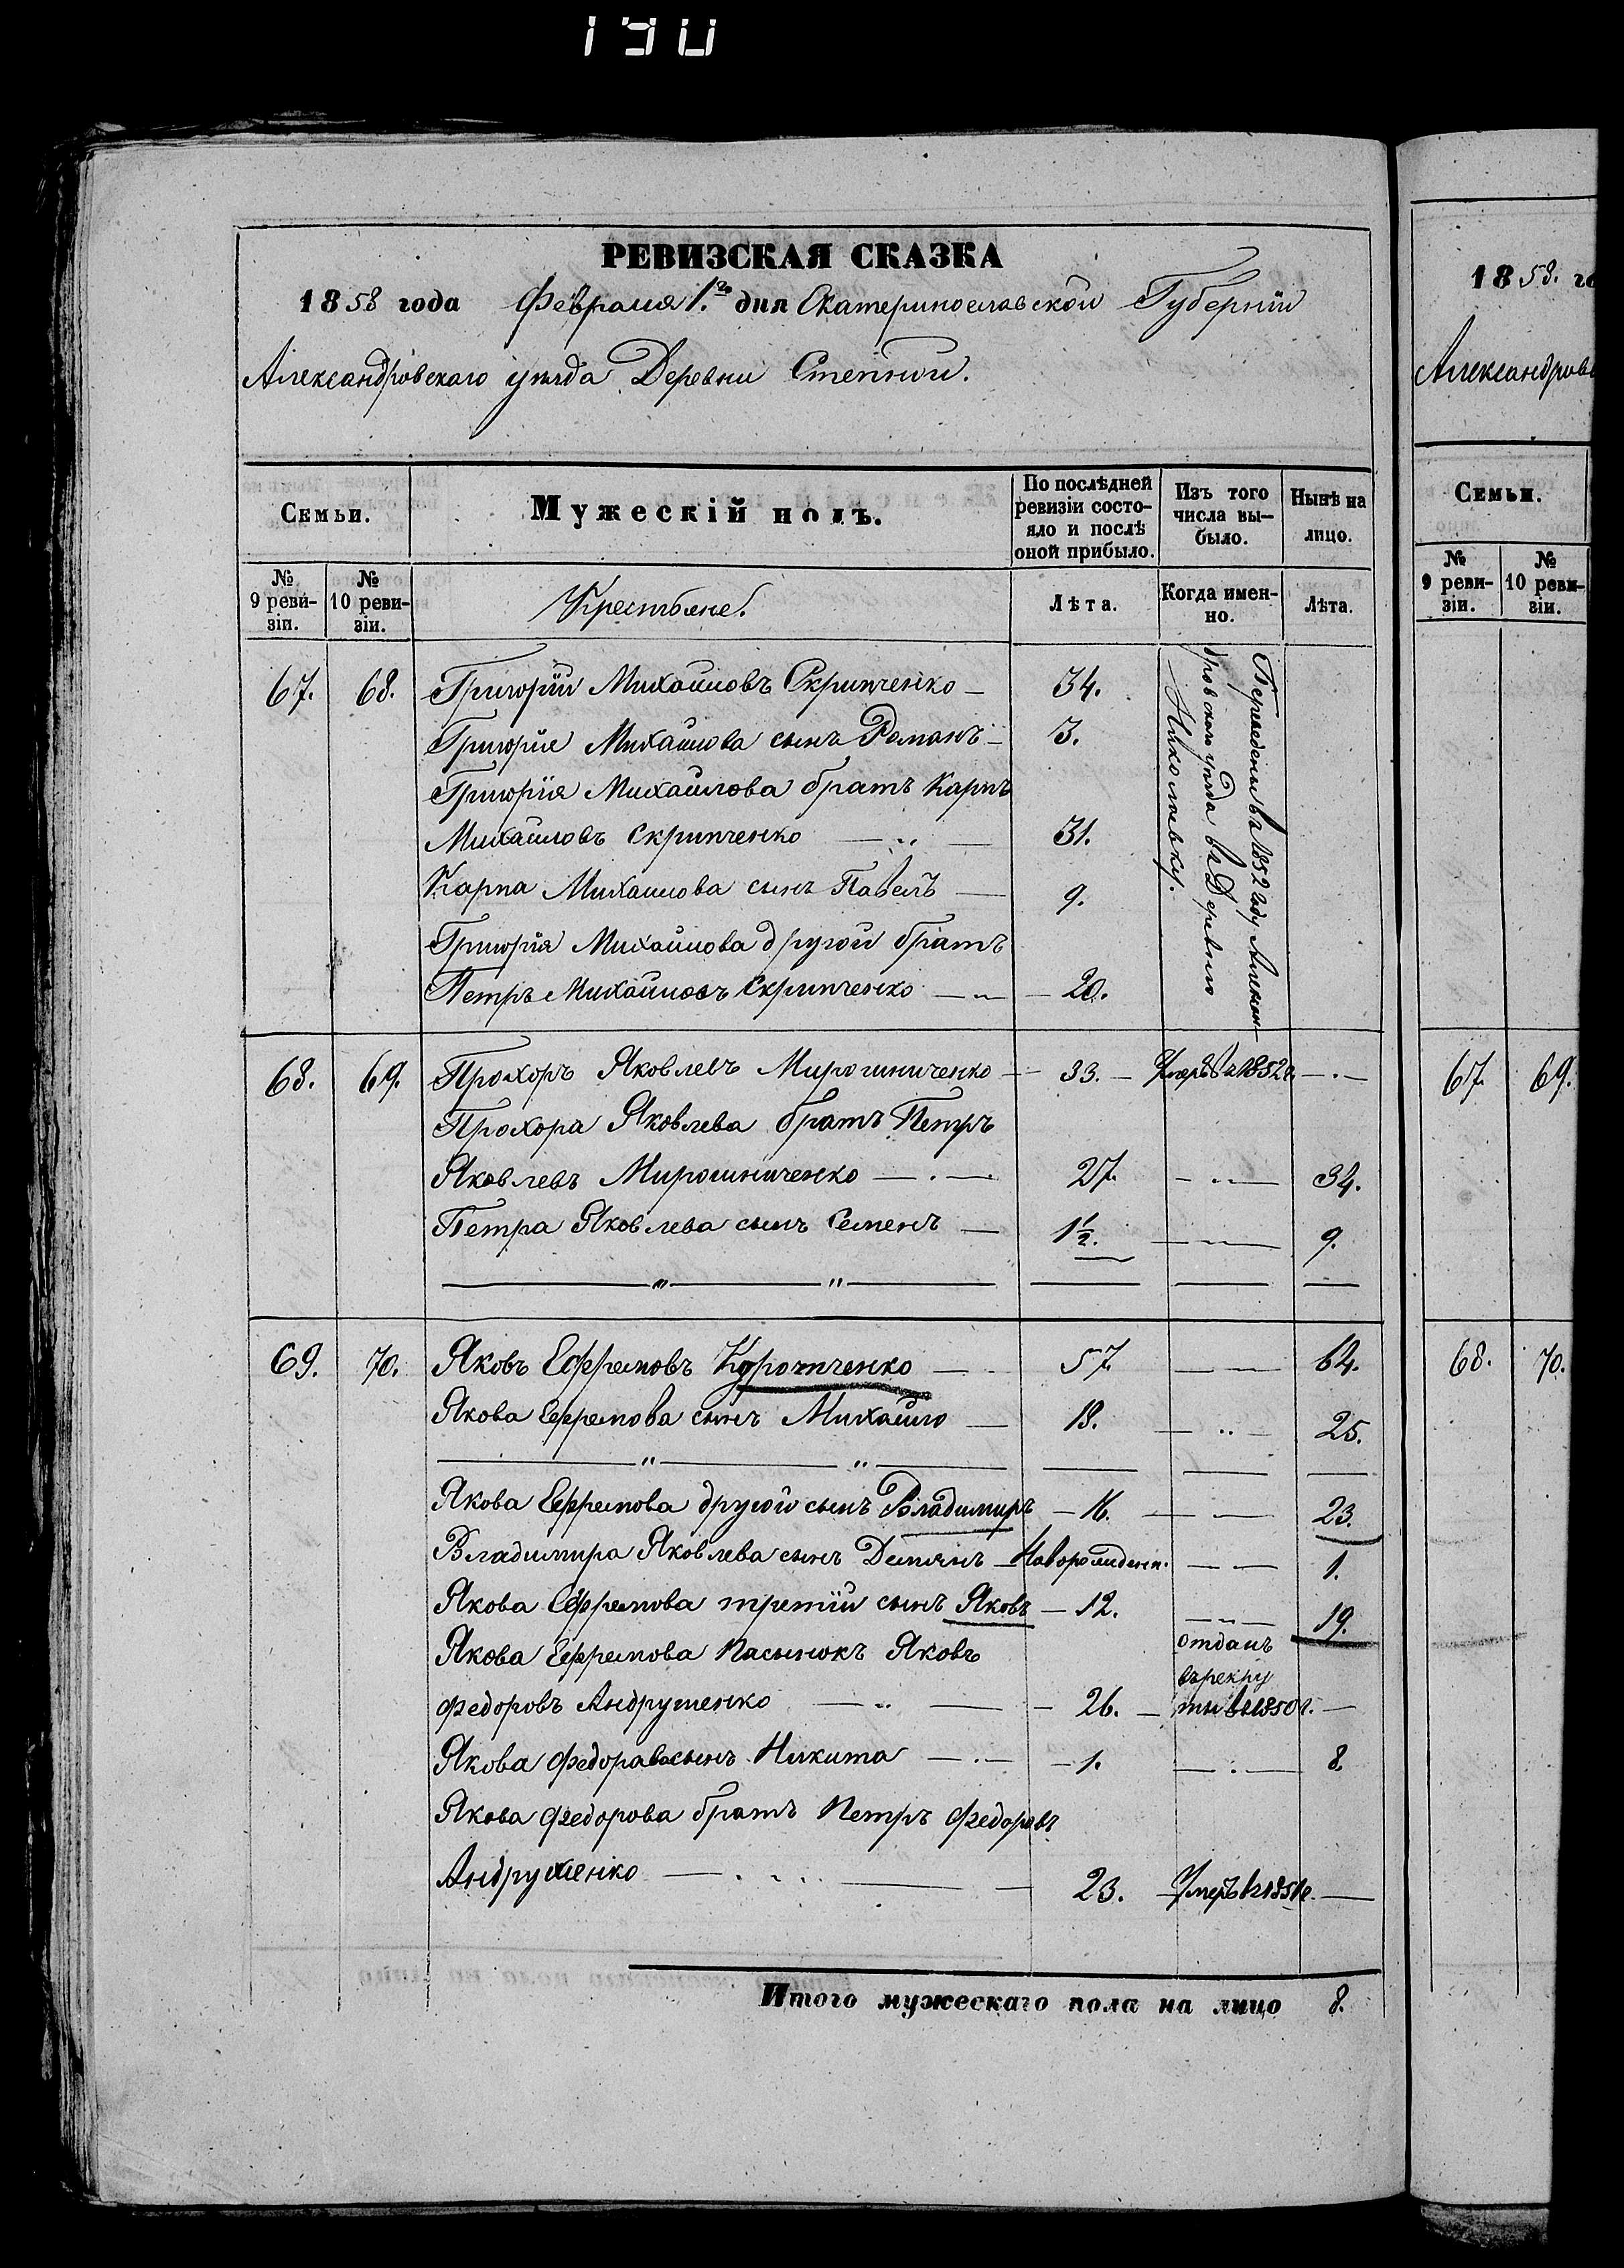 190
РЕВИЗСКАЯ СКАЗКА
1858 года Февраля 1.го дня Екатеринославской Губернiи
Александровскаго уѣзда Деревни Степной.
Семьи.
Мужескiй полъ.
По послѣдней ревизiи состояло и послѣ оной прибыло.
Изъ того числа вы-было.
Нынѣ на лицо.
№ 9 реви-зiи.
№ 10 реви-зiи.
Крестьяне.
Лѣта.
Когда имен-но.
Лѣта.
67. 68. Григорiй Михайловъ Скрипченко — 34.
Григорiя Михайлова сынъ Романъ — 3.
Григорiя Михайлова братъ Карпъ
Михайловъ Скрипченко — „ — 31.
Карпа Михайлова сынъ Павелъ — 9.
Григорiя Михайлова другой братъ
Петръ Михайловъ Скрипченко — „ — 20.
Переведены въ 1852 году Алексан-
дровскаго уѣзда въ Деревню
Николаевку.
68. 69. Прохоръ Яковлевъ Мирошниченко — 33. — Умеръ въ 1852 г. — . —
Прохора Яковлева братъ Петръ
Яковлевъ Мирошниченко — . — 27. — „ — 34.
Петра Яковлева сынъ Семенъ — 1½. — „ — 9.
— „ — „ —
69. 70. Яковъ Ефремовъ Куропченко — 57. — — 64.
Якова Ефремова сынъ Михайло — 18. — „ — 25.
— „ — „ —
Якова Ефремова другой сынъ Владимиръ — 16. — — 23.
Владимира Яковлева сынъ Демянъ — Новорожденн. — — 1.
Якова Ефремова третiй сынъ Яковъ — 12. — „ — 19.
Якова Ефремова пасынокъ Яковъ
Федоровъ Андрущенко — „ — 26. — отданъ
въ рекру
ты въ 1850 г. —
Якова Федорова сынъ Никита — . — 1. — . — 8.
Якова Федорова братъ Петръ Федоровъ
Андрущенко — 23. — Умеръ въ 1851 г. —
Итого мужескаго пола на лицо 8.
1858. го
Александров
Семьи.
№ 9 реви-зiи.
№ 10 реви-зiи.
67. 69.
68. 70.